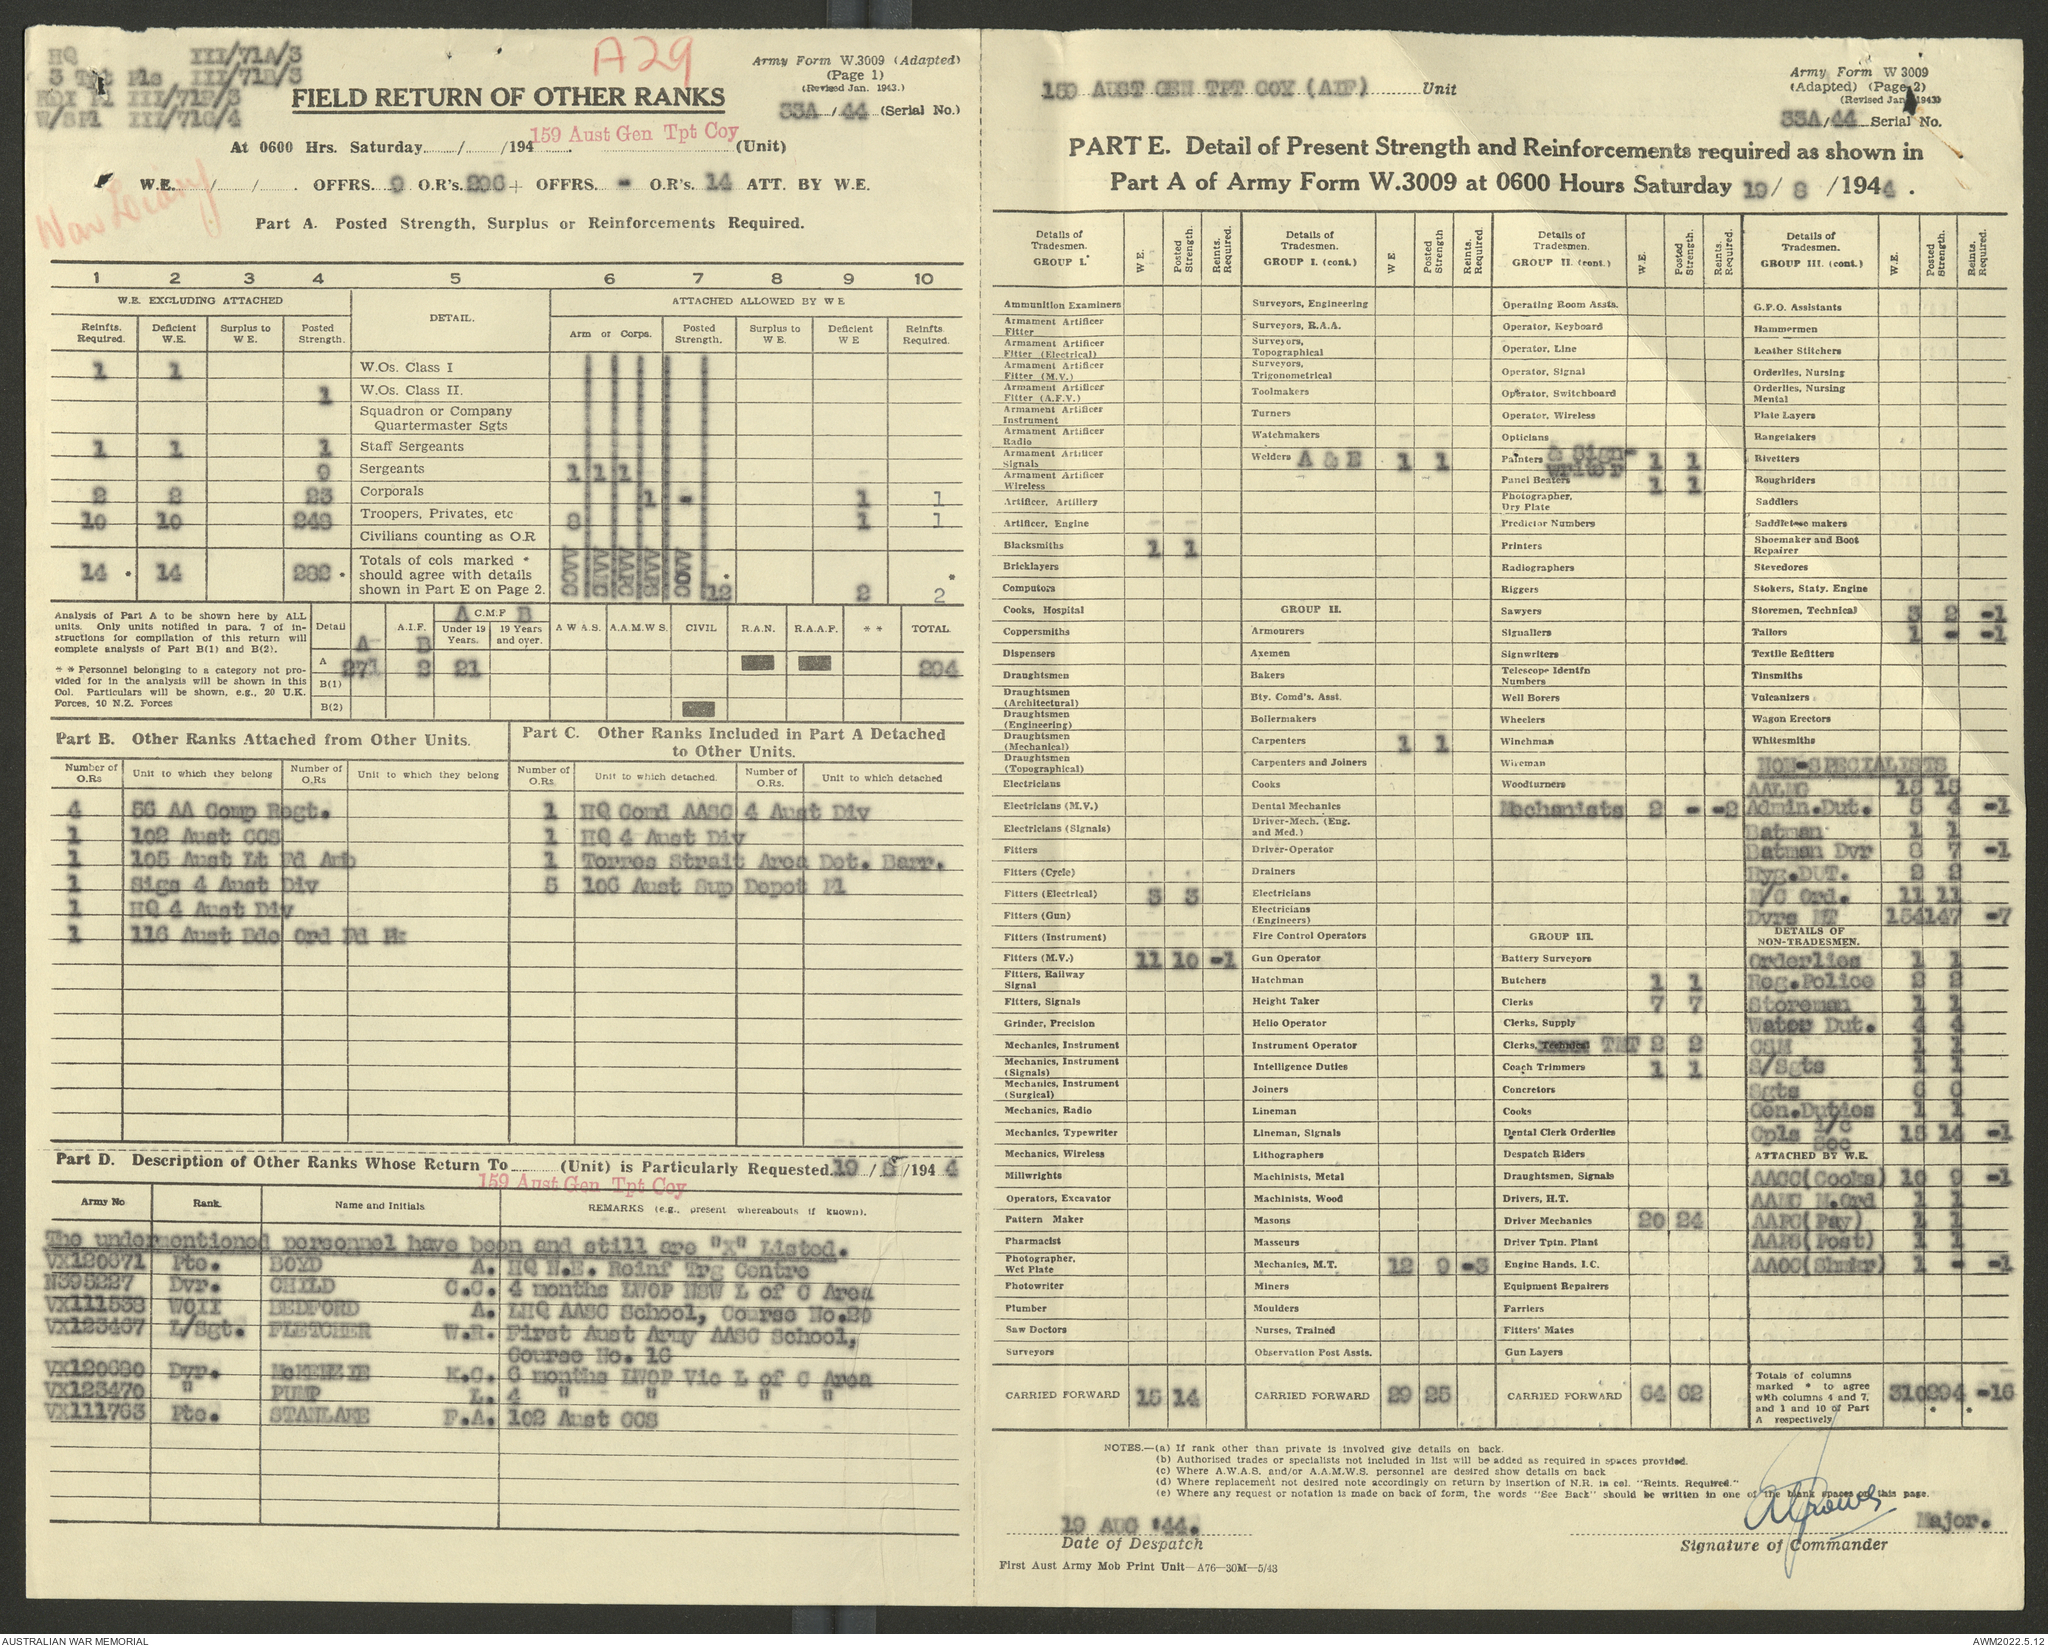 HQ III/71A/3
3 Tpt Pls III/71B/3
III/71F/3
W/SPl III/71G/4
A29
War Diary
Army Form W.3009 (Adapted)
(Page 1)
(Revised Jan. 1943.)
33A/44 (Serial No.)
FIELD RETURN OF OTHER RANKS
159 Aust Gen Tpt Coy
At 0600 Hrs. Saturday......../......../194........ (Unit)
W.E. / / . OFFRS. 9 O.R's. 296 + OFFRS. - O.R's. 14 ATT. BY W.E.
Part A. Posted Strength, Surplus or Reinforcements Required.
1 2 3 4 5 6 7 8 9 10
W.E. EXCLUDING ATTACHED DETAIL. ATTACHED ALLOWED BY W E
Reinfts. Required. Deficient W.E. Surplus to W E. Posted Strength. Arm or Corps. Posted Strength. Surplus to W E. Deficient W E Reinfts. Required.
1 1 W.Os. Class I
1 W.Os. Class II.
Squadron or Company Quartermaster Sgts
1 1 1 Staff Sergeants
9 Sergeants 1 1 1
2 2 23 Corporals 1 - 1 1
10 10 248 Troopers, Privates, etc 8 1 1
Civilians counting as O.R
14 * 14 282 * Totals of cols marked * should agree with details shown in Part E on Page 2. AACC AAMC AAPC AAPS AAOC 12 * 2 2 *
Analysis of Part A to be shown here by ALL units. Only units notified in para. 7 of instructions for compilation of this return will complete analysis of Part B(1) and B(2).
* * Personnel belonging to a category not provided for in the analysis will be shown in this Col. Particulars will be shown, e.g., 20 U.K. Forces, 10 N.Z. Forces
Detail A.I.F. A B A C.M.F B Under 19 Years. 19 Years and over. A W A S. A.A.M.W S. CIVIL R.A.N. R.A.A.F. * * TOTAL.
A 271 2 21 294
B(1)
B(2)
Part B. Other Ranks Attached from Other Units.
Number of O.Rs Unit to which they belong Number of O.Rs Unit to which they belong
4 56 AA Comp Regt.
1 102 Aust CCS
1 105 Aust Lt Fd Amb
1 Sigs 4 Aust Div
1 HQ 4 Aust Div
1 116 Aust Bde Ord Fd Pk
Part C. Other Ranks Included in Part A Detached to Other Units.
Number of O.Rs. Unit to which detached. Number of O.Rs. Unit to which detached
1 HQ Comd AASC 4 Aust Div
1 HQ 4 Aust Div
1 Torres Strait Area Det. Barr.
5 106 Aust Sup Depot Pl
Part D. Description of Other Ranks Whose Return To ........ (Unit) is Particularly Requested. 19 / 8 /194 4
159 Aust Gen Tpt Coy
Army No Rank. Name and Initials REMARKS (e.g., present whereabouts if known).
The undermentioned personnel have been and still are "X" Listed.
VX120671 Pte. BOYD A. HQ N.E. Reinf Trg Centre
N395227 Dvr. CHILD C.C. 4 months LWOP NSW L of C Area
VX111538 WOII BEDFORD A. LHQ AASC School, Course No.20
VX123467 L/Sgt. FLETCHER W.R. First Aust Army AASC School,
Course No. 16
VX120680 Dvr. McKENZIE K.C. 6 months LWOP Vic L of C Area
VX123470 " PUMP L. 4 " " " "
VX111763 Pte. STANLAKE F.A. 102 Aust CCS
159 AUST GEN TPT COY (AIF) Unit
Army Form W 3009
(Adapted) (Page 2)
(Revised Jan. 1943)
33A/44 Serial No.
PART E. Detail of Present Strength and Reinforcements required as shown in
Part A of Army Form W.3009 at 0600 Hours Saturday 19/ 8 /1944 .
Details of Tradesmen. GROUP I. W E. Posted Strength. Reints. Required.
Ammunition Examiners
Armament Artificer Fitter
Armament Artificer Fitter (Electrical)
Armament Artificer Fitter (M.V.)
Armament Artificer Fitter (A.F.V.)
Armament Artificer Instrument
Armament Artificer Radio
Armament Artificer Signals
Armament Artificer Wireless
Artificer, Artillery
Artificer, Engine
Blacksmiths 1 1
Bricklayers
Computors
Cooks, Hospital
Coppersmiths
Dispensers
Draughtsmen
Draughtsmen (Architectural)
Draughtsmen (Engineering)
Draughtsmen (Mechanical)
Draughtsmen (Topographical)
Electricians
Electricians (M.V.)
Electricians (Signals)
Fitters
Fitters (Cycle)
Fitters (Electrical) 3 3
Fitters (Gun)
Fitters (Instrument)
Fitters (M.V.) 11 10 -1
Fitters, Railway Signal
Fitters, Signals
Grinder, Precision
Mechanics, Instrument
Mechanics, Instrument (Signals)
Mechanics, Instrument (Surgical)
Mechanics, Radio
Mechanics, Typewriter
Mechanics, Wireless
Millwrights
Operators, Excavator
Pattern Maker
Pharmacist
Photographer, Wet Plate
Photowriter
Plumber
Saw Doctors
Surveyors
CARRIED FORWARD 15 14
Details of Tradesmen. GROUP I. (cont.) W E Posted Strength Reints. Required.
Surveyors, Engineering
Surveyors, R.A.A.
Surveyors, Topographical
Surveyors, Trigonometrical
Toolmakers
Turners
Watchmakers
Welders A & E 1 1
GROUP II.
Armourers
Axemen
Bakers
Bty. Comd's. Asst.
Boilermakers
Carpenters 1 1
Carpenters and Joiners
Cooks
Dental Mechanics
Driver-Mech. (Eng. and Med.)
Driver-Operator
Drainers
Electricians
Electricians (Engineers)
Fire Control Operators
Gun Operator
Hatchman
Height Taker
Helio Operator
Instrument Operator
Intelligence Duties
Joiners
Lineman
Lineman, Signals
Lithographers
Machinists, Metal
Machinists, Wood
Masons
Masseurs
Mechanics, M.T. 12 9 -3
Miners
Moulders
Nurses, Trained
Observation Post Assts.
CARRIED FORWARD 29 25
Details of Tradesmen. GROUP II. (cont.) W.E. Posted Strength. Reints. Required.
Operating Room Assts.
Operator, Keyboard
Operator, Line
Operator, Signal
Operator, Switchboard
Operator, Wireless
Opticians
Painters & Sign-writer 1 1
Panel Beaters 1 1
Photographer, Dry Plate
Predictor Numbers
Printers
Radiographers
Riggers
Sawyers
Signallers
Signwriters
Telescope Identfn Numbers
Well Borers
Wheelers
Winchman
Wireman
Woodturners
Mechanists 2 - -2
GROUP III.
Battery Surveyors
Butchers 1 1
Clerks 7 7
Clerks, Supply
Clerks, Technical TMT 2 2
Coach Trimmers 1 1
Concretors
Cooks
Dental Clerk Orderlies
Despatch Riders
Draughtsmen, Signals
Drivers, H.T.
Driver Mechanics 20 24
Driver Tptn. Plant
Engine Hands, I.C.
Equipment Repairers
Farriers
Fitters' Mates
Gun Layers
CARRIED FORWARD 64 62
Details of Tradesmen. GROUP III. (cont.) W.E. Posted Strength. Reints. Required.
G.P.O. Assistants
Hammermen
Leather Stitchers
Orderlies, Nursing
Orderlies, Nursing Mental
Plate Layers
Rangetakers
Rivetters
Roughriders
Saddlers
Saddletree makers
Shoemaker and Boot Repairer
Stevedores
Stokers, Staty. Engine
Storemen, Technical 3 2 -1
Tailors 1 - -1
Textile Refitters
Tinsmiths
Vulcanizers
Wagon Erectors
Whitesmiths
NON-SPECIALISTS
AALMG 15 15
Admin.Dut. 5 4 -1
Batman 1 1
Batman Dvr 8 7 -1
Hyg.DUT. 2 2
M/C Ord. 11 11
Dvrs MT 154 147 -7
DETAILS OF NON-TRADESMEN.
Orderlies 1 1
Reg.Police 2 2
Storeman 1 1
Water Dut. 4 4
CSM 1 1
S/Sgts 1 1
Sgts 6 6
Gen.Duties 1 1
Cpls I/C Sec 15 14 -1
ATTACHED BY W.E.
AACC(Cooks) 10 9 -1
AAMC N.Ord 1 1
AAPC(Pay) 1 1
AAPS(Post) 1 1
AAOC(Shmkr) 1 - -1
Totals of columns marked * to agree with columns 4 and 7, and 1 and 10 of Part A respectively 310 294 -16
NOTES.—(a) If rank other than private is involved give details on back.
(b) Authorised trades or specialists not included in list will be added as required in spaces provided.
(c) Where A.W.A.S. and/or A.A.M.W.S. personnel are desired show details on back
(d) Where replacement not desired note accordingly on return by insertion of N.R. in col. "Reints. Required."
(e) Where any request or notation is made on back of form, the words "See Back" should be written in one of the blank spaces on this page.
19 AUG '44. Major.
Date of Despatch Signature of Commander
First Aust Army Mob Print Unit—A76—30M—5/43
AUSTRALIAN WAR MEMORIAL AWM2022.5.12